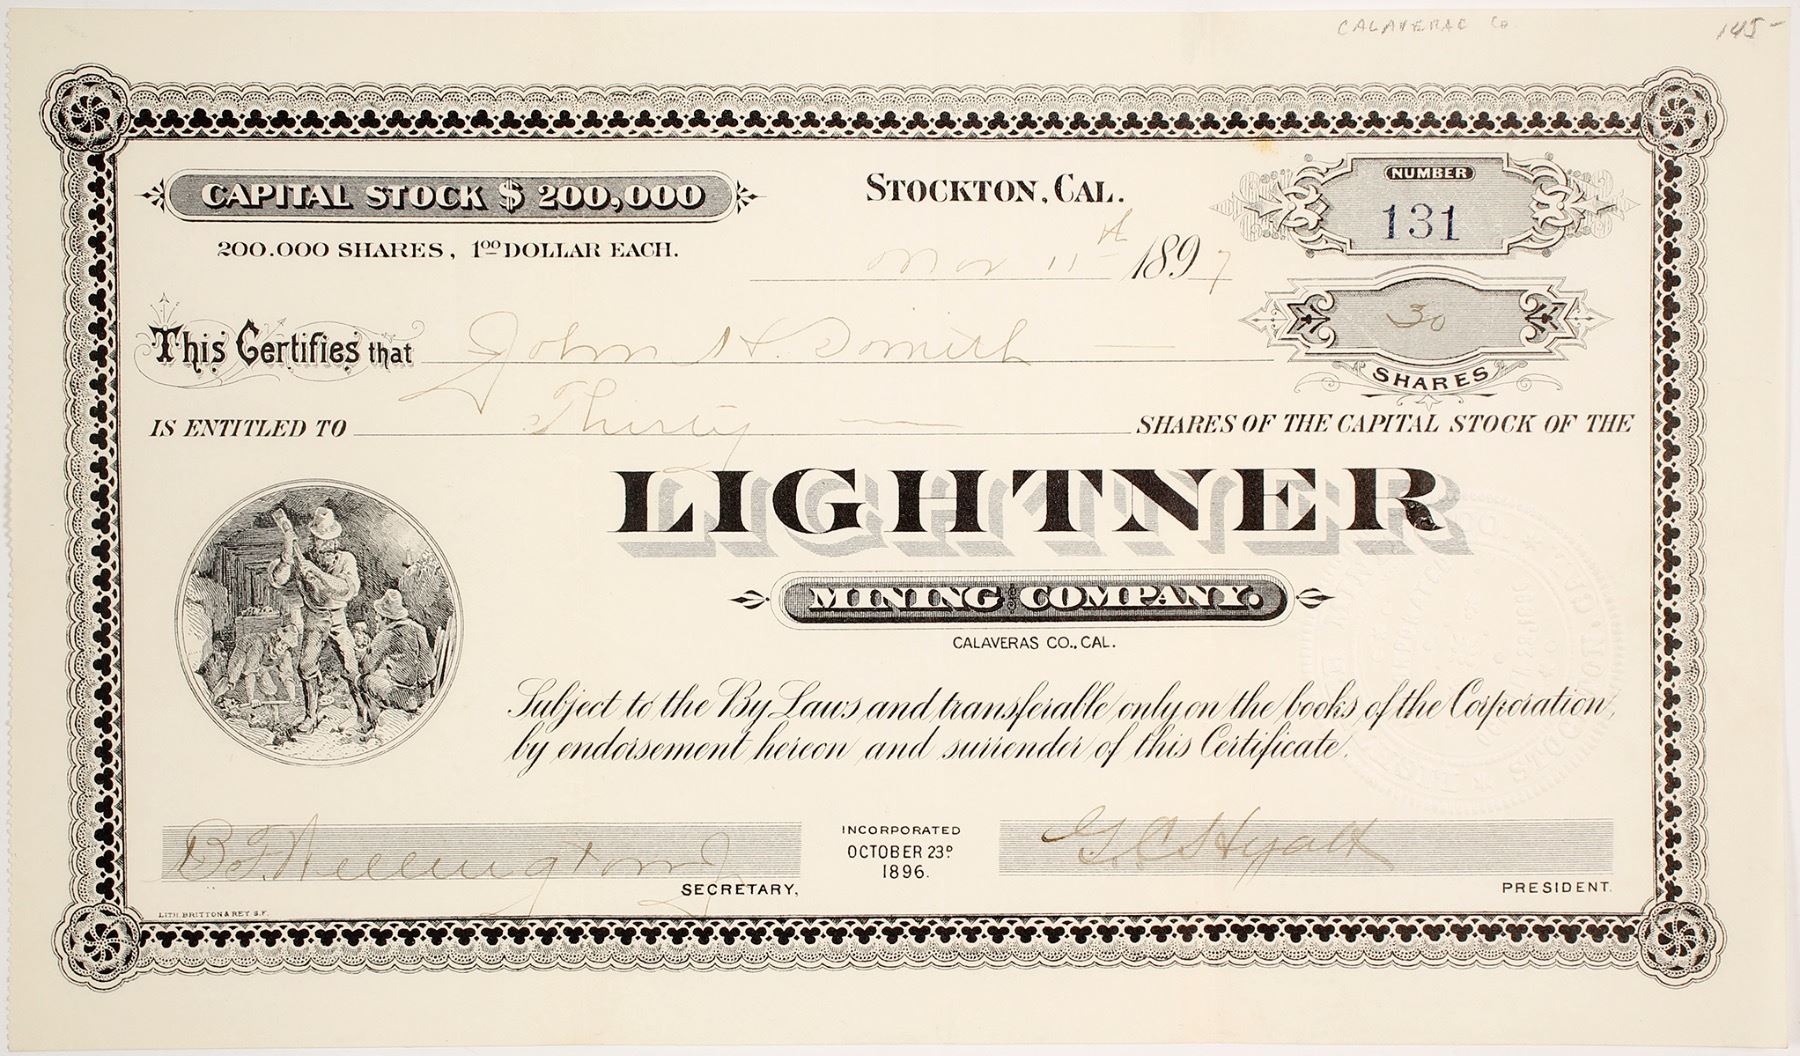 CALAVERAS Co
145-
CAPITAL STOCK $ 200,000
200.000 SHARES, 100 DOLLAR EACH.
STOCKTON, CAL.
Nov 11th 1897
NUMBER
131
30
SHARES
This Certifies that John H. Smith
IS ENTITLED TO Thirty SHARES OF THE CAPITAL STOCK OF THE
LIGHTNER
MINING COMPANY.
CALAVERAS CO., CAL.
Subject to the By Laws and transferable only on the books of the Corporation,
by endorsement hereon and surrender of this Certificate.
B. F. Wellington Jr
SECRETARY,
INCORPORATED
OCTOBER 23D
1896.
G. C. Hyatt
PRESIDENT.
LITH. BRITTON & REY S.F.